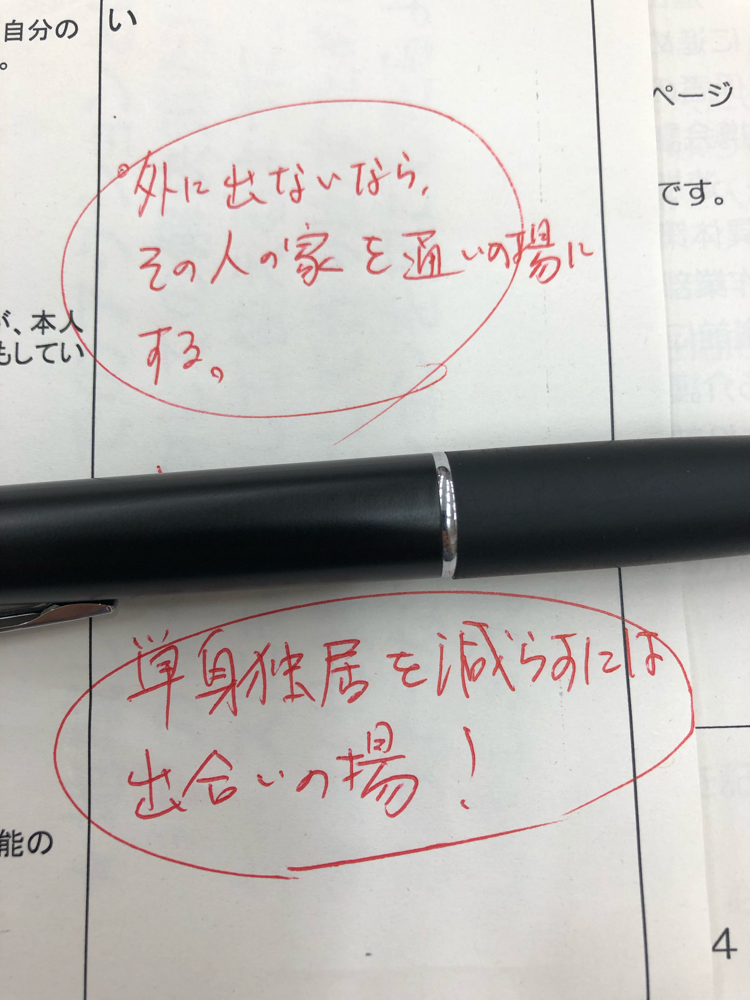 自分の
。
い
ページ
です。
外に出ないなら、
その人の家を通いの場に
する。
が、本人
もしてい
単身独居を減らすには
出合いの場!
能の
4